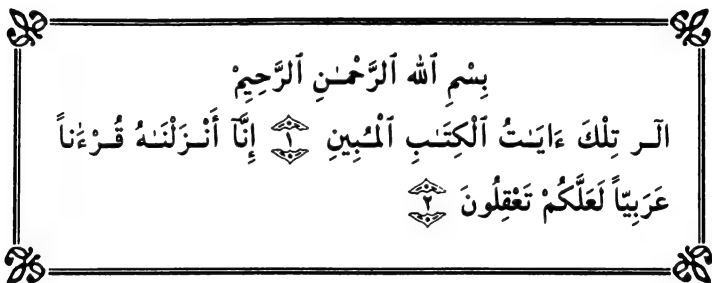 بِسْمِ ٱللهِ ٱلرَّحْمَـٰنِ ٱلرَّحِيمِْ
الٓـر تِلْكَ ءَايَـٰتُ ٱلْكِتَـٰبِ ٱلْمُبِينِ ١ إِنَّآ أَنْـزَلْنَـٰهُ قُـرْءَٰناً
عَرَبِيّاً لَعَلَّكُمْ تَعْقِلُونَ ٢